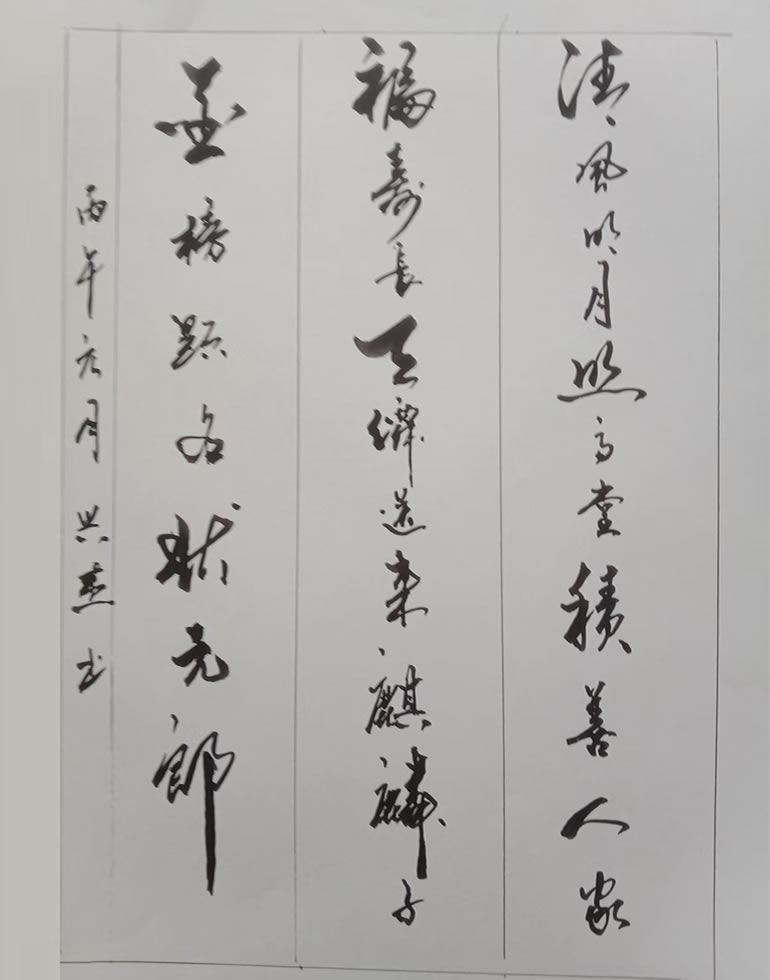 清风明月照高堂积善人家
福寿长天绎送来麒麟子
金榜题名状元郎
丙午元月兴杰书